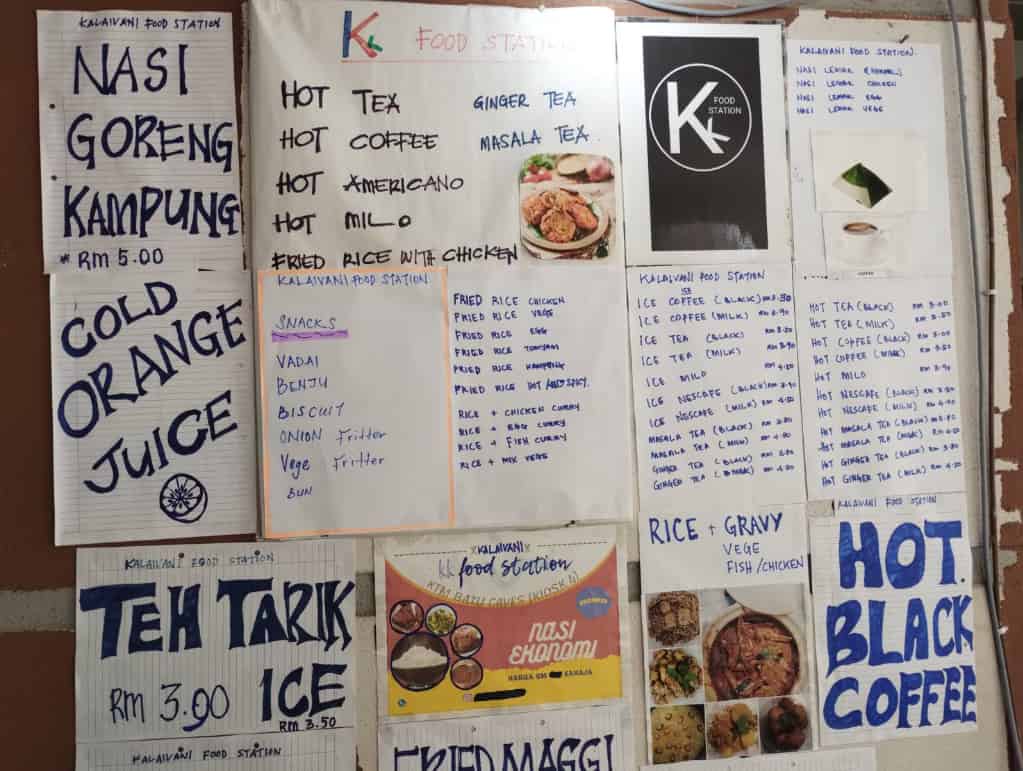 KALAIVANI FOOD STATION
NASI
GORENG
KAMPUNG
* RM 5.00
COLD
ORANGE
JUICE
KK FOOD STATION
HOT TEA
HOT COFFEE
HOT AMERICANO
HOT MILO
FRIED RICE WITH CHICKEN
GINGER TEA
MASALA TEA
KALAIVANI FOOD STATION
SNACKS
VADAI
BENJU
BISCUIT
ONION Fritter
Vege Fritter
BUN
FRIED RICE CHICKEN
FRIED RICE VEGE
FRIED RICE EGG
FRIED RICE TOMYAM
FRIED RICE KAMPUNG
FRIED RICE HOT AND SPICY.
RICE + CHICKEN CURRY
RICE + EGG CURRY
RICE + FISH CURRY
RICE + MIX VEGE
KK FOOD
STATION
KALAIVANI FOOD STATION.
NASI LEMAK
NASI LEMAK CHICKEN
NASI LEMAK EGG
NASI LEMAK VEGE
COFFEE
KALAIVANI FOOD STATION
ICE COFFEE (BLACK) RM
ICE COFFEE (MILK) RM
ICE TEA (BLACK) RM
ICE TEA (MILK) RM
ICE MILO RM
ICE NESCAFE (BLACK) RM
ICE NESCAFE (MILK) RM
MASALA TEA (BLACK) RM
MASALA TEA (MILK) RM
GINGER TEA (BLACK) RM
GINGER TEA RM
HOT TEA (BLACK) RM
HOT TEA (MILK) RM
HOT COFFEE (BLACK) RM
HOT COFFEE RM
HOT MILO RM
HOT NESCAFE (BLACK) RM
HOT NESCAFE (MILK) RM
HOT MASALA TEA (BLACK) RM
HOT MASALA TEA RM
HOT GINGER TEA (BLACK) RM
HOT GINGER TEA (MILK) RM
KALAIVANI FOOD STATION
TEH TARIK
RM 3.00 ICE
RM 3.50
KALAIVANI FOOD STATION
KALAIVANI
kk food station
KTM BATU CAVES (KIOSK 4)
NASI
EKONOMI
HARGA RM SAHAJA
FRIED MAGGI
RICE + GRAVY
VEGE
FISH/CHICKEN
KALAIVANI FOOD STATION
HOT.
BLACK
COFFEE